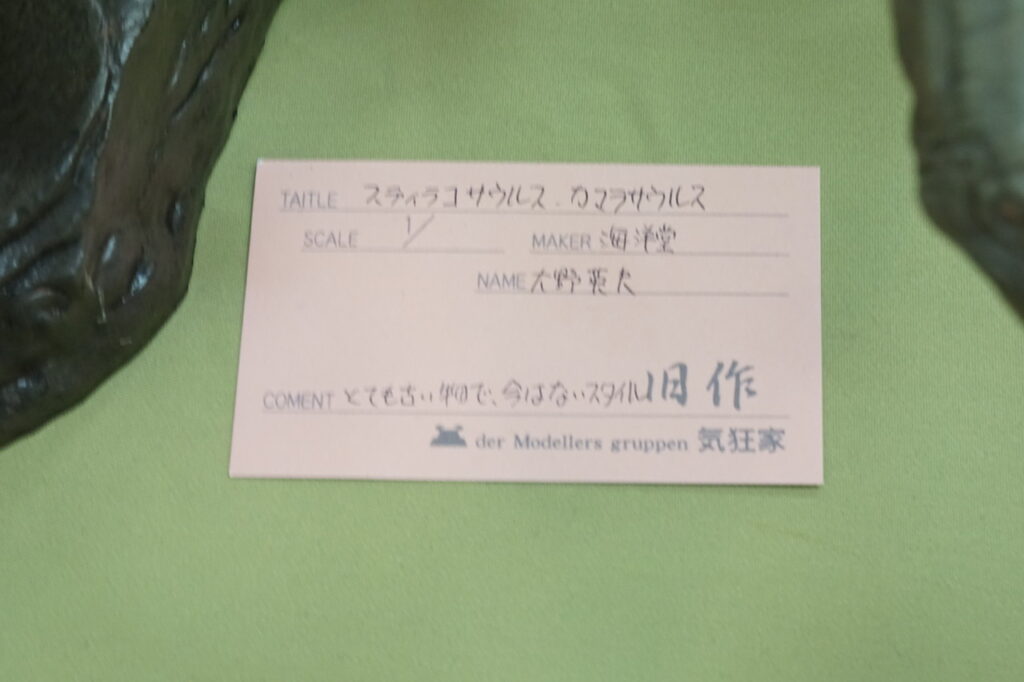 TAITLE スティラコサウルス.カマラサウルス
SCALE 1/ MAKER 海洋堂
NAME 大野英夫
COMENT とても古い物で、今はないスタイル 旧作
der Modellers gruppen 気狂家